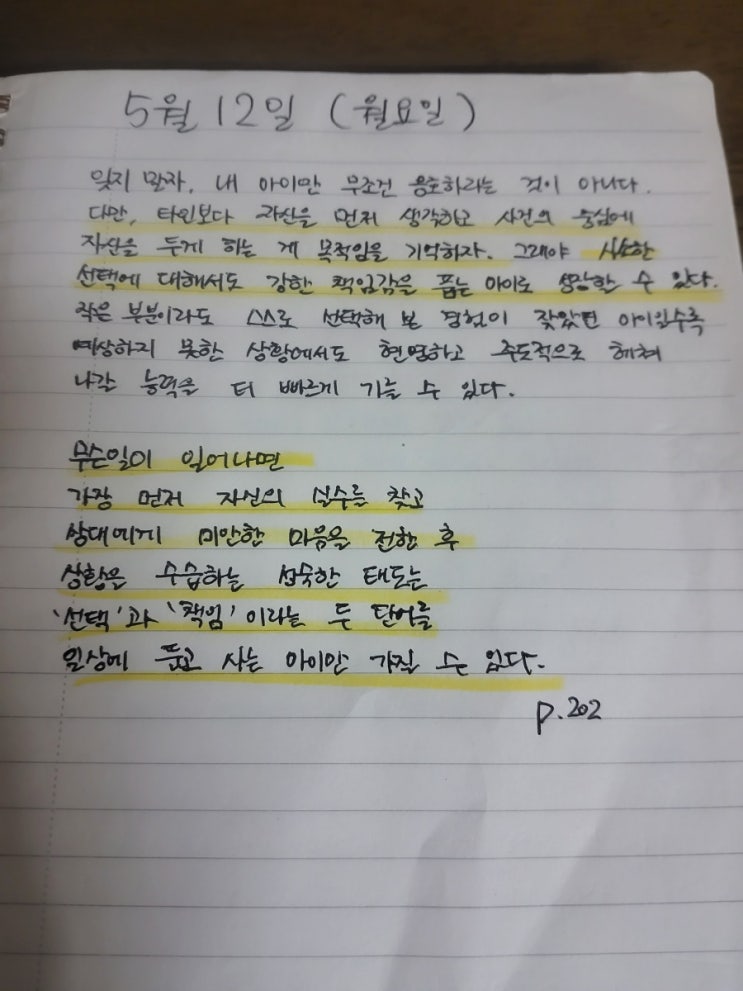 5월 12일 (월요일)
잊지 말자. 내 아이만 무조건 옹호하라는 것이 아니다.
다만, 타인보다 자신을 먼저 생각하고 사건의 중심에
자신을 두게 하는 게 목적임을 기억하자. 그래야 사소한
선택에 대해서도 강한 책임감을 품는 아이로 성장할 수 있다.
작은 부분이라도 스스로 선택해 본 경험이 잦았던 아이일수록
예상하지 못한 상황에서도 현명하고 주도적으로 헤쳐
나갈 능력을 더 빠르게 기를 수 있다.
무슨일이 일어나면
가장 먼저 자신의 실수를 찾고
상대에게 미안한 마음을 전한 후
상황을 수습하는 성숙한 태도는
'선택'과 '책임'이라는 두 단어를
일상에 품고 사는 아이만 가질 수 있다.
p.202